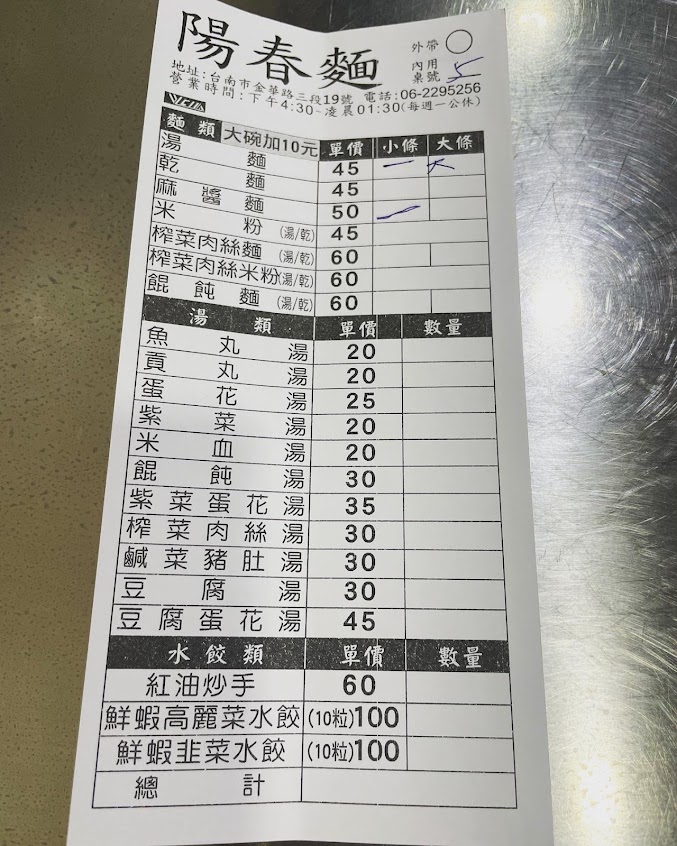 陽春麵
外帶
內用
桌號 5
地址:台南市金華路三段19號 電話:06-2295256
營業時間:下午4:30-凌晨01:30(每週一公休)
麵類 大碗加10元 單價 小條 大條
湯麵 45 一
乾麵 45
麻醬麵 50
米粉 (湯/乾) 45
榨菜肉絲麵 (湯/乾) 60
榨菜肉絲米粉(湯/乾) 60
餛飩麵 (湯/乾) 60
湯類 單價 數量
魚丸湯 20
貢丸湯 20
蛋花湯 25
紫菜湯 20
米血湯 20
餛飩湯 30
紫菜蛋花湯 35
榨菜肉絲湯 30
鹹菜豬肚湯 30
豆腐湯 30
豆腐蛋花湯 45
水餃類 單價 數量
紅油炒手 60
鮮蝦高麗菜水餃 (10粒)100
鮮蝦韭菜水餃 (10粒)100
總計